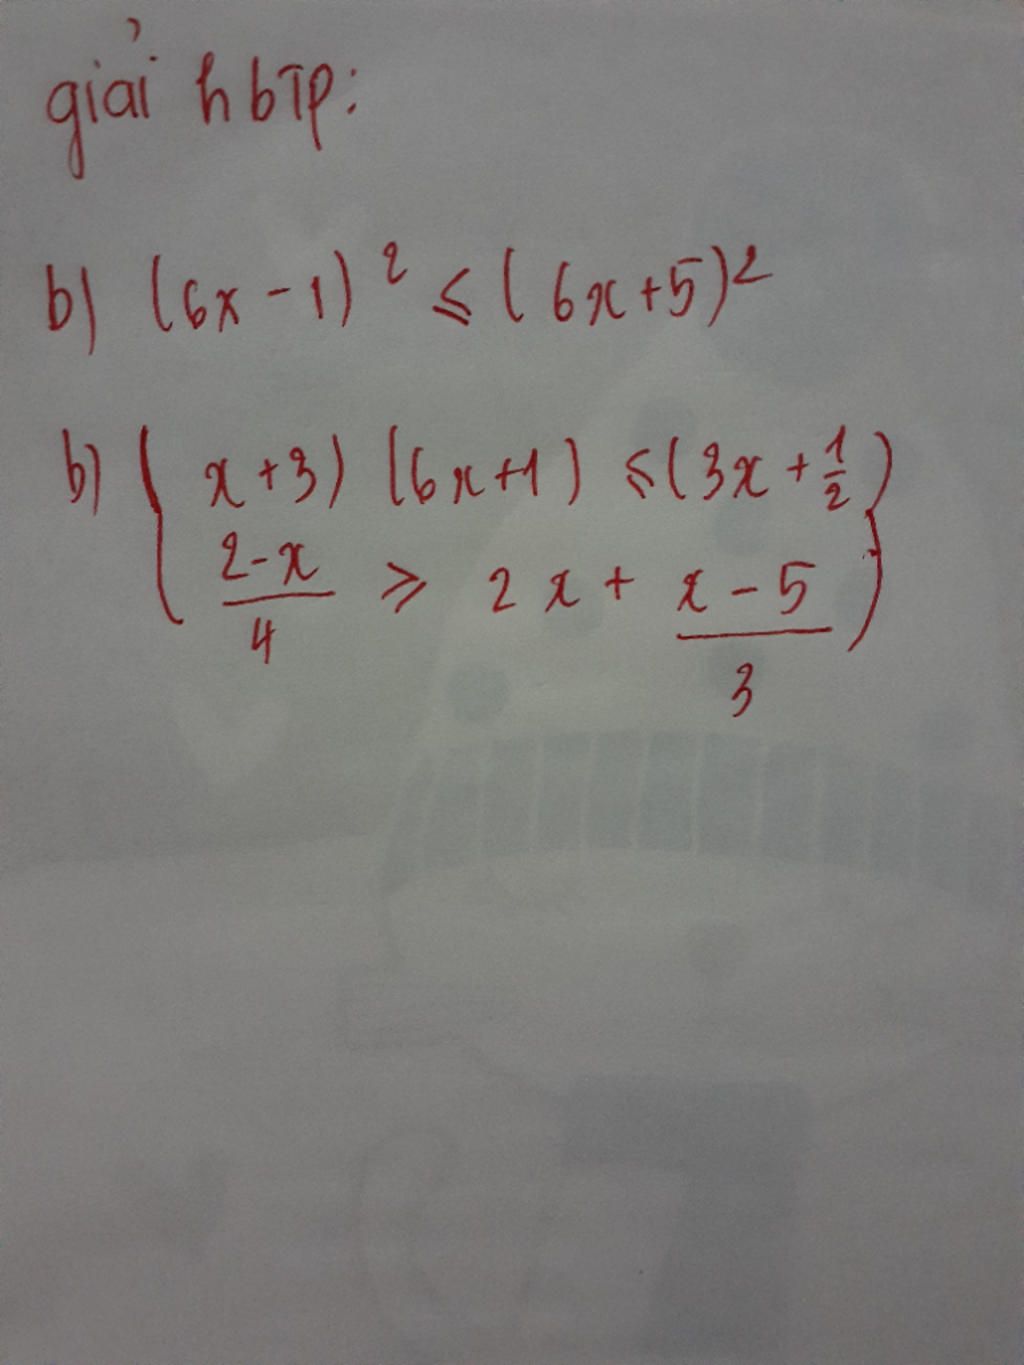 giải hbTp:
b) (6x - 1)² ≤ (6x+5)²
b) { x+3) (6x+1) ≤ (3x + 1/2)
(2-x)/4 ≥ 2x + (x-5)/3 }